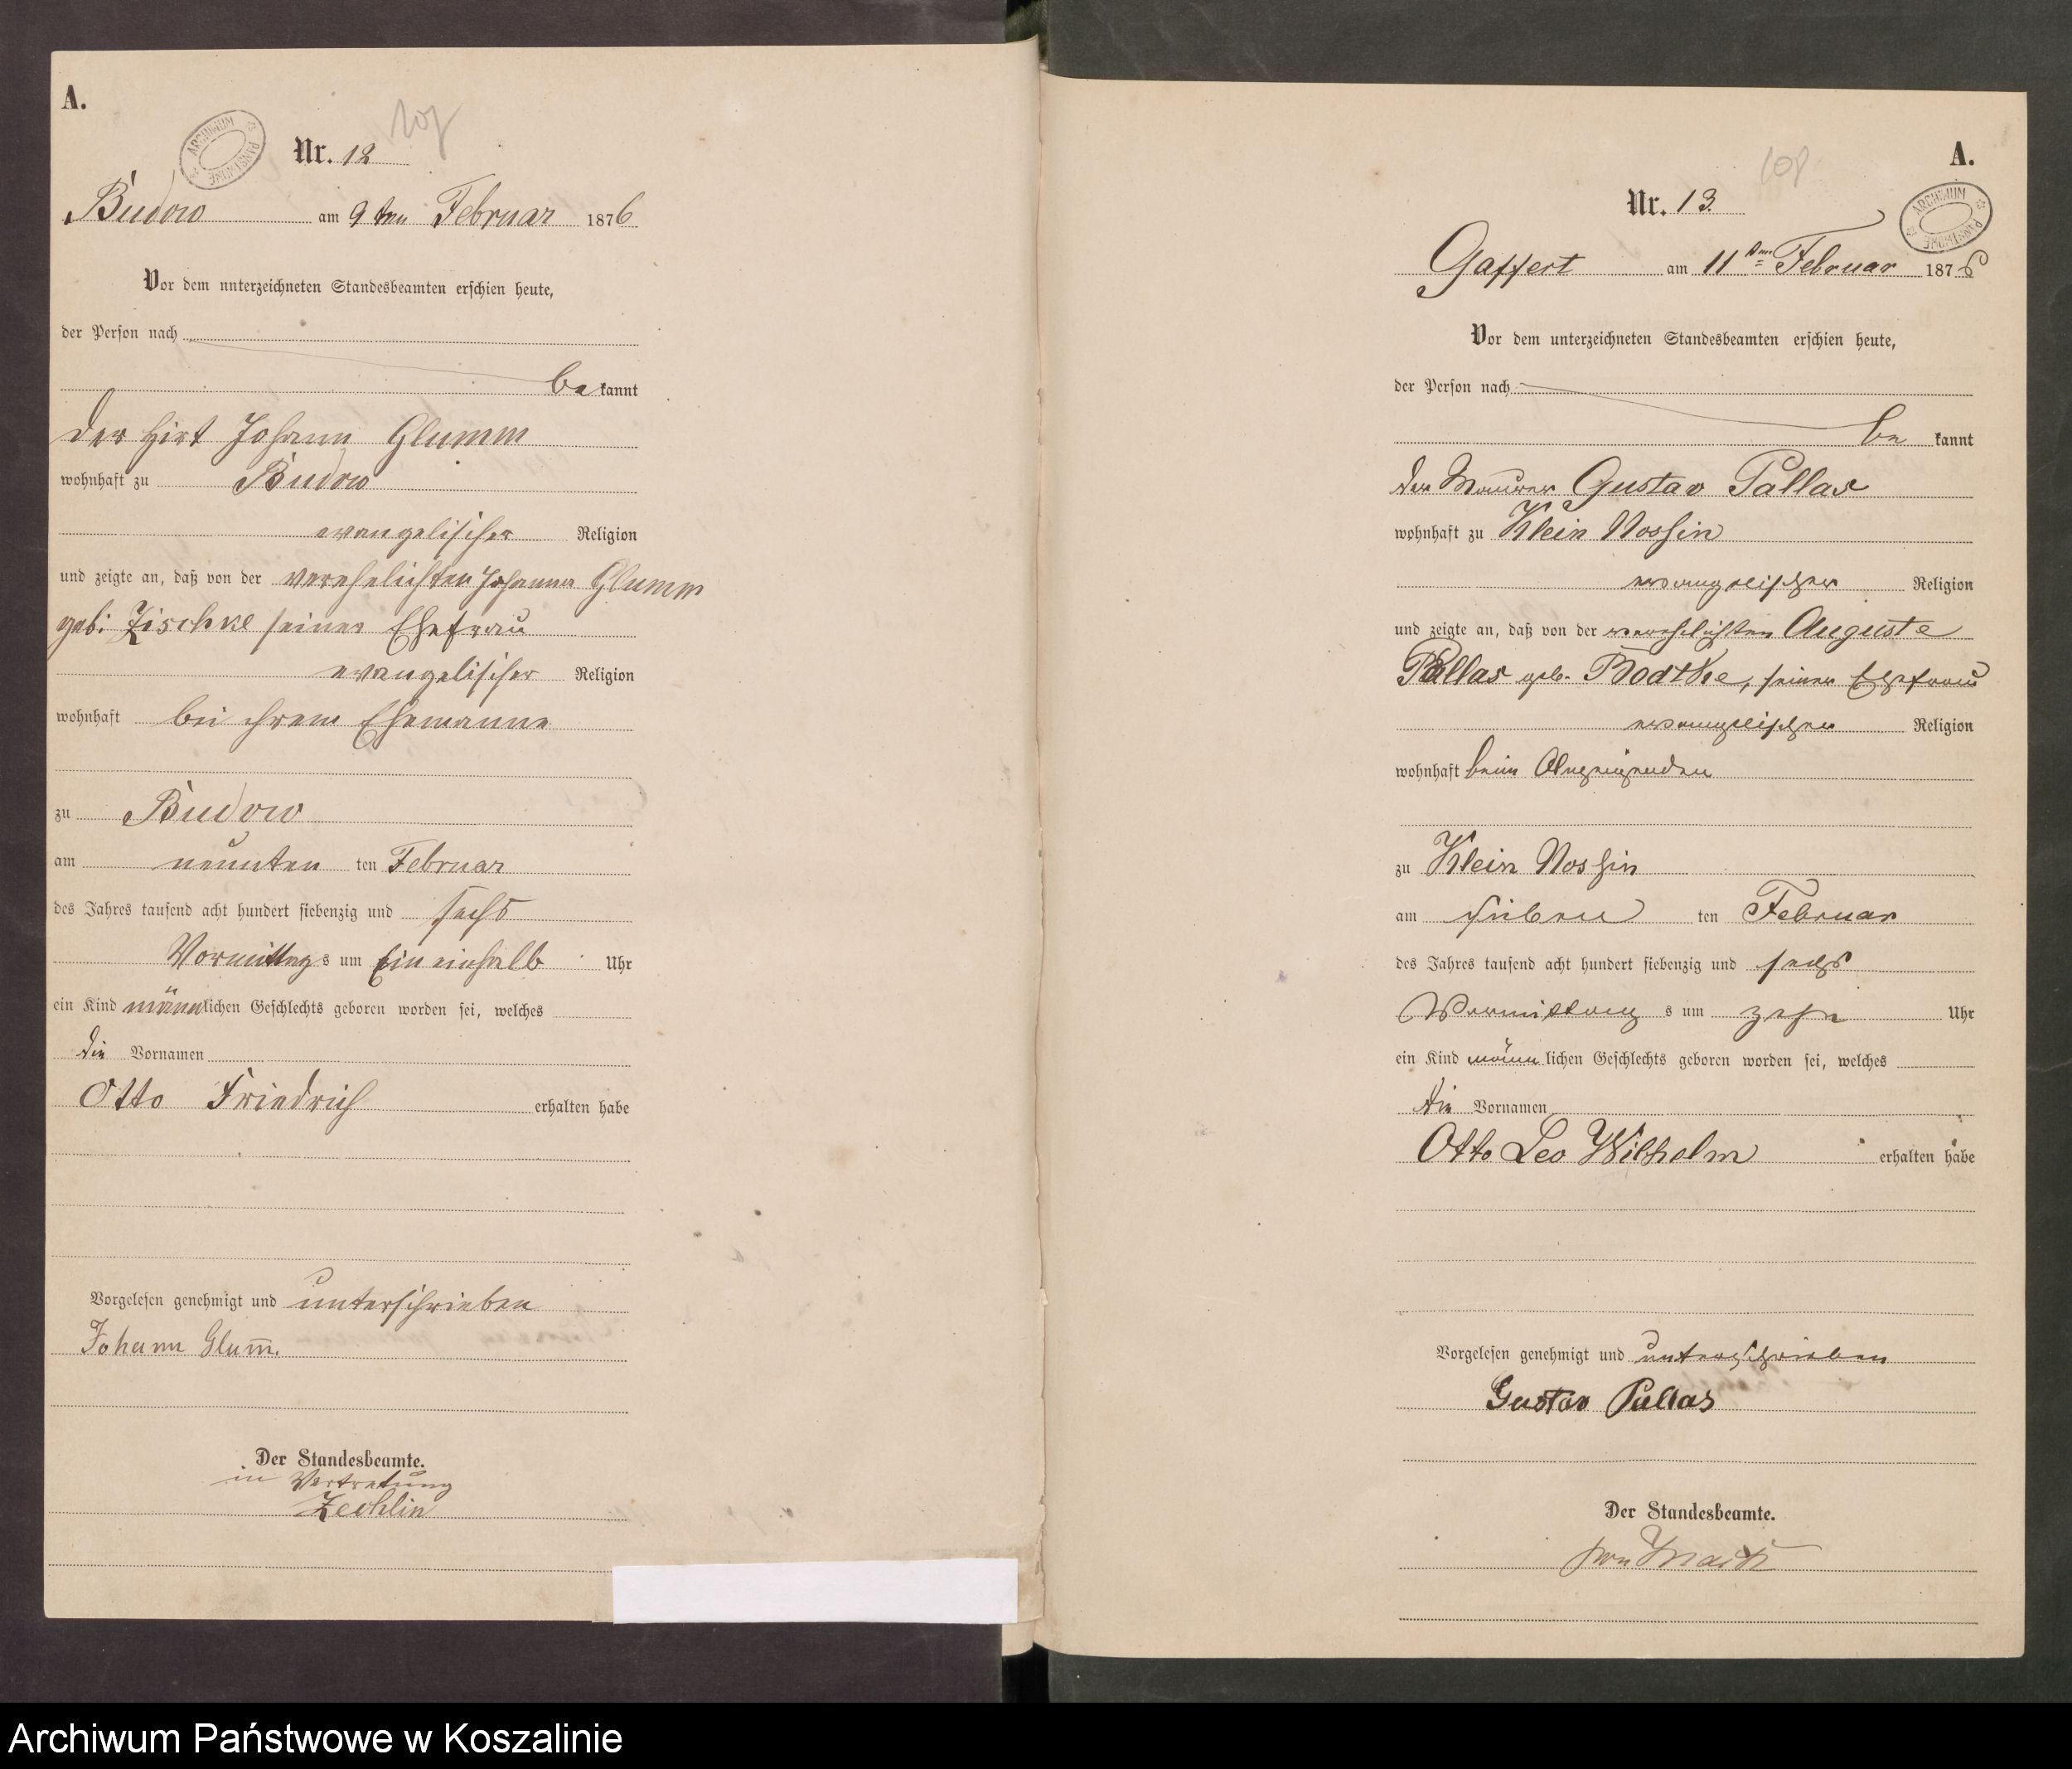 A.
ARCHIWUM PAŃSTWOWE
107
Nr. 12
Budow am 9ten Februar 1876
Vor dem unterzeichneten Standesbeamten erschien heute,
der Person nach
bekannt
der Hirt Johann Glumm
wohnhaft zu Budow
evangelischer Religion
und zeigte an, daß von der verehelichten Johanna Glumm
geb: Zischke seiner Ehefrau
evangelischer Religion
wohnhaft bei ihrem Ehemanne
zu Budow
am neunten ten Februar
des Jahres tausend acht hundert siebenzig und sechs
Vormittags um Ein einhalb Uhr
ein Kind männlichen Geschlechts geboren worden sei, welches
die Vornamen
Otto Friedrich erhalten habe
Vorgelesen genehmigt und unterschrieben
Johann Glum̅.
Der Standesbeamte.
in Vertretung
Zechlin
108
A.
ARCHIWUM PAŃSTWOWE
Nr. 13.
Gaffert am 11ten Februar 1876
Vor dem unterzeichneten Standesbeamten erschien heute,
der Person nach
be kannt
der Maurer Gustav Pallas
wohnhaft zu Klein Nossin
evangelischer Religion
und zeigte an, daß von der verehelichten Auguste
Pallas geb. Bodtke, seiner Ehefrau
evangelischer Religion
wohnhaft beim Anzeigenden
zu Klein Nossin
am sieben ten Februar
des Jahres tausend acht hundert siebenzig und sechs
Vormittag s um zehn Uhr
ein Kind männ lichen Geschlechts geboren worden sei, welches
die Vornamen
Otto Leo Wilhelm erhalten habe
Vorgelesen genehmigt und unterschrieben
Gustav Pallas
Der Standesbeamte.
von
Archiwum Państwowe w Koszalinie